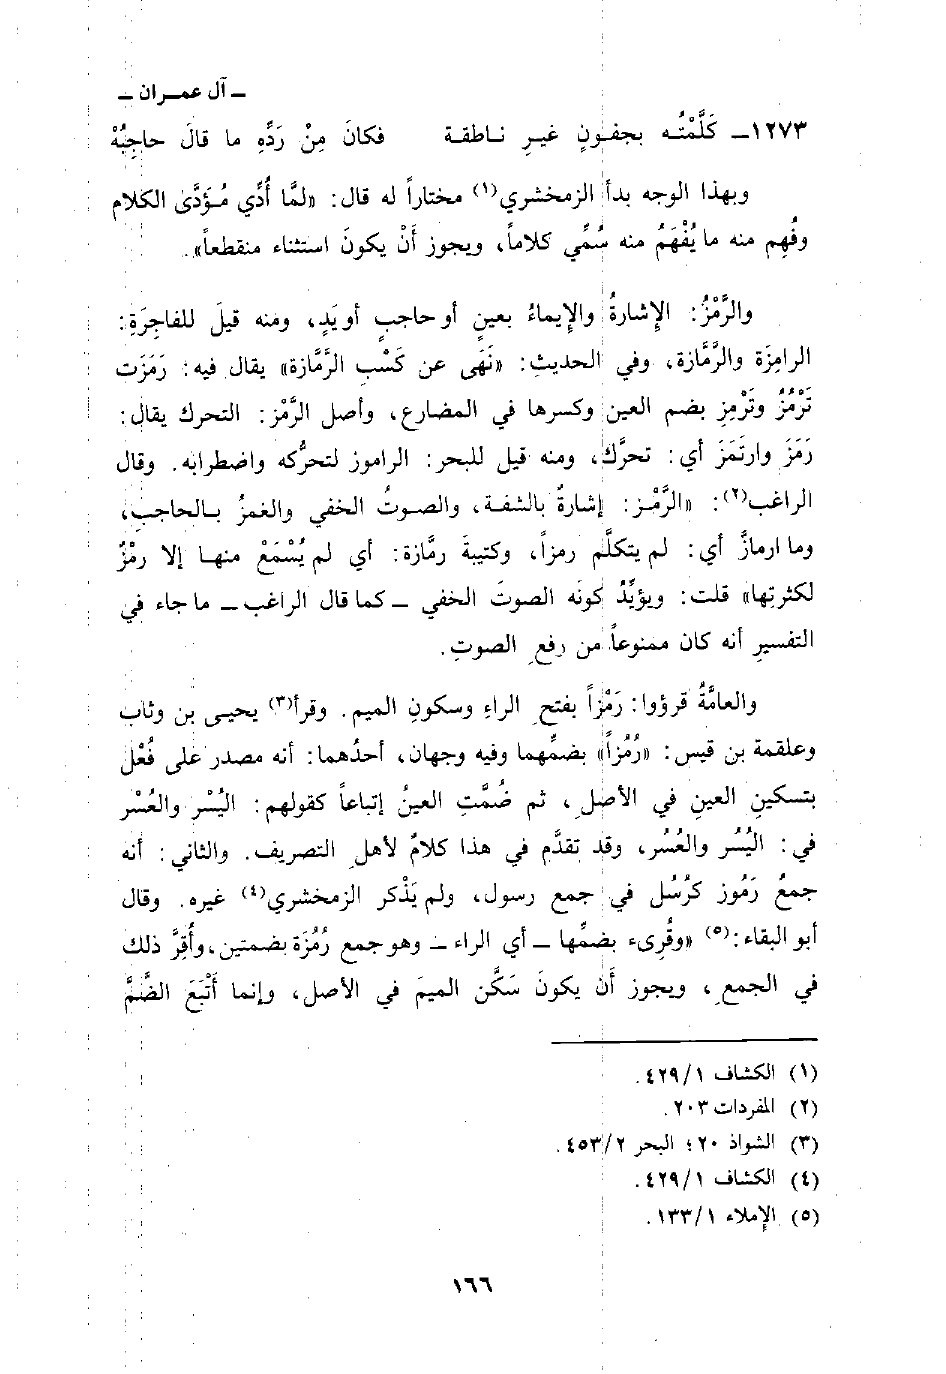 ـ آل عمـران ـ
١٢٧٣ـ كَلَّمْتُـه بجفـونٍ غيـرِ نـاطقـة فكانَ مِنْ رَدِّهِ ما قالَ حاجِبُهْ
وبهذا الوجه بدأ الزمخشري(١) مختاراً له قال: «لمَّا أُدِّي مُـؤَدَّى الكلام
وفُهِم منه ما يُفْهَمُ منه سُمِّي كلاماً، ويجوز أَنْ يكونَ استثناء منقطعاً».
والرَّمْزُ: الإِشارةُ والإِيماءُ بعينٍ أو حاجبٍ أو يَدٍ، ومنه قيلَ للفاجِرَةِ:
الرامِزَة والرَّمَّازة، وفي الحديثِ: «نَهَى عن كَسْبِ الرَّمَّازة» يقال فيه: رَمَزَت
تَرْمُزُ وتَرْمِز بضم العين وكسرها في المضارع، وأصل الرَّمْز: التحرك يقال:
رَمَزَ وارتَمَزَ أي: تحرَّك، ومنه قيل للبحر: الراموز لتحرُّكه واضطرابه. وقال
الراغب(٢): «الرَّمْـز: إشارةٌ بالشفـة، والصـوتُ الخفي والغمزُ بـالحاجبِ،
وما ارمازَّ أي: لم يتكلَّم رمزاً، وكتيبةَ رمَّازة: أي لم يُسْمَعْ منهـا إلا رمْزٌ
لكثرتِها» قلت: ويؤيِّدُ كونَه الصوتَ الخفي ـ كما قال الراغب ـ ما جاء في
التفسيرِ أنه كان ممنوعاً من رفعِ الصوتِ.
والعامَّةُ قرؤوا: رَمْزاً بفتح الراءِ وسكونِ الميم. وقرأ(٣) يحيـى بن وثاب
وعلقمة بن قيس: «رُمُزاً» بضمِّهما وفيه وجهان، أحدُهما: أنه مصدر على فُعْل
بتسكينِ العينِ في الأصلِ، ثم ضُمَّتِ العينُ إتباعاً كقولهم: اليُسْر والعُسْر
في: اليُسُر والعُسُر، وقد تقدَّم في هذا كلامٌ لأهلِ التصريف. والثاني: أنه
جمعُ رَمُوز كرُسُل في جمع رسول، ولم يَذْكر الزمخشري(٤) غيره. وقال
أبو البقاء:(٥) «وقُرِىء بضمِّها ـ أي الراء ـ وهو جمع رُمُزَة بضمتين، وأُقِرَّ ذلك
في الجمعِ، ويجوز أَن يكونَ سَكَّن الميمَ في الأصل، وإنما أَتْبَعَ الضَّمَّ
(١) الكشاف ٤٢٩/١.
(٢) المفردات ٢٠٣.
(٣) الشواذ ٢٠؛ البحر ٤٥٣/٢.
(٤) الكشاف ٤٢٩/١.
(٥) الإملاء ١٣٣/١.
١٦٦